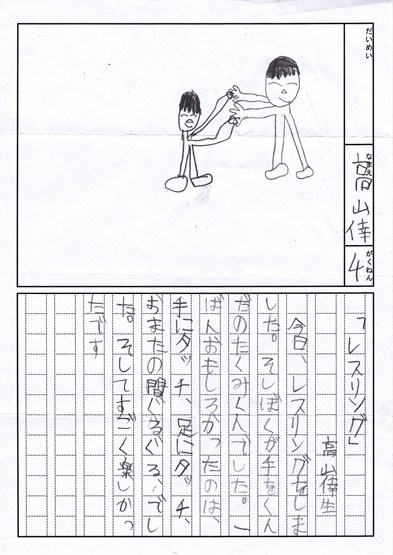 だいめい
なまえ
髙山倖
がくねん
4
「レスリング」
高山倖生
今日、レスリングをしま
した。そしぼくが手をくん
だのたくみくんでした。一
ばんおもしろかったのは、
手にタッチ、足にタッチ、
おまたの間ぐるぐる、でし
た。そしてすごく楽しかっ
たです